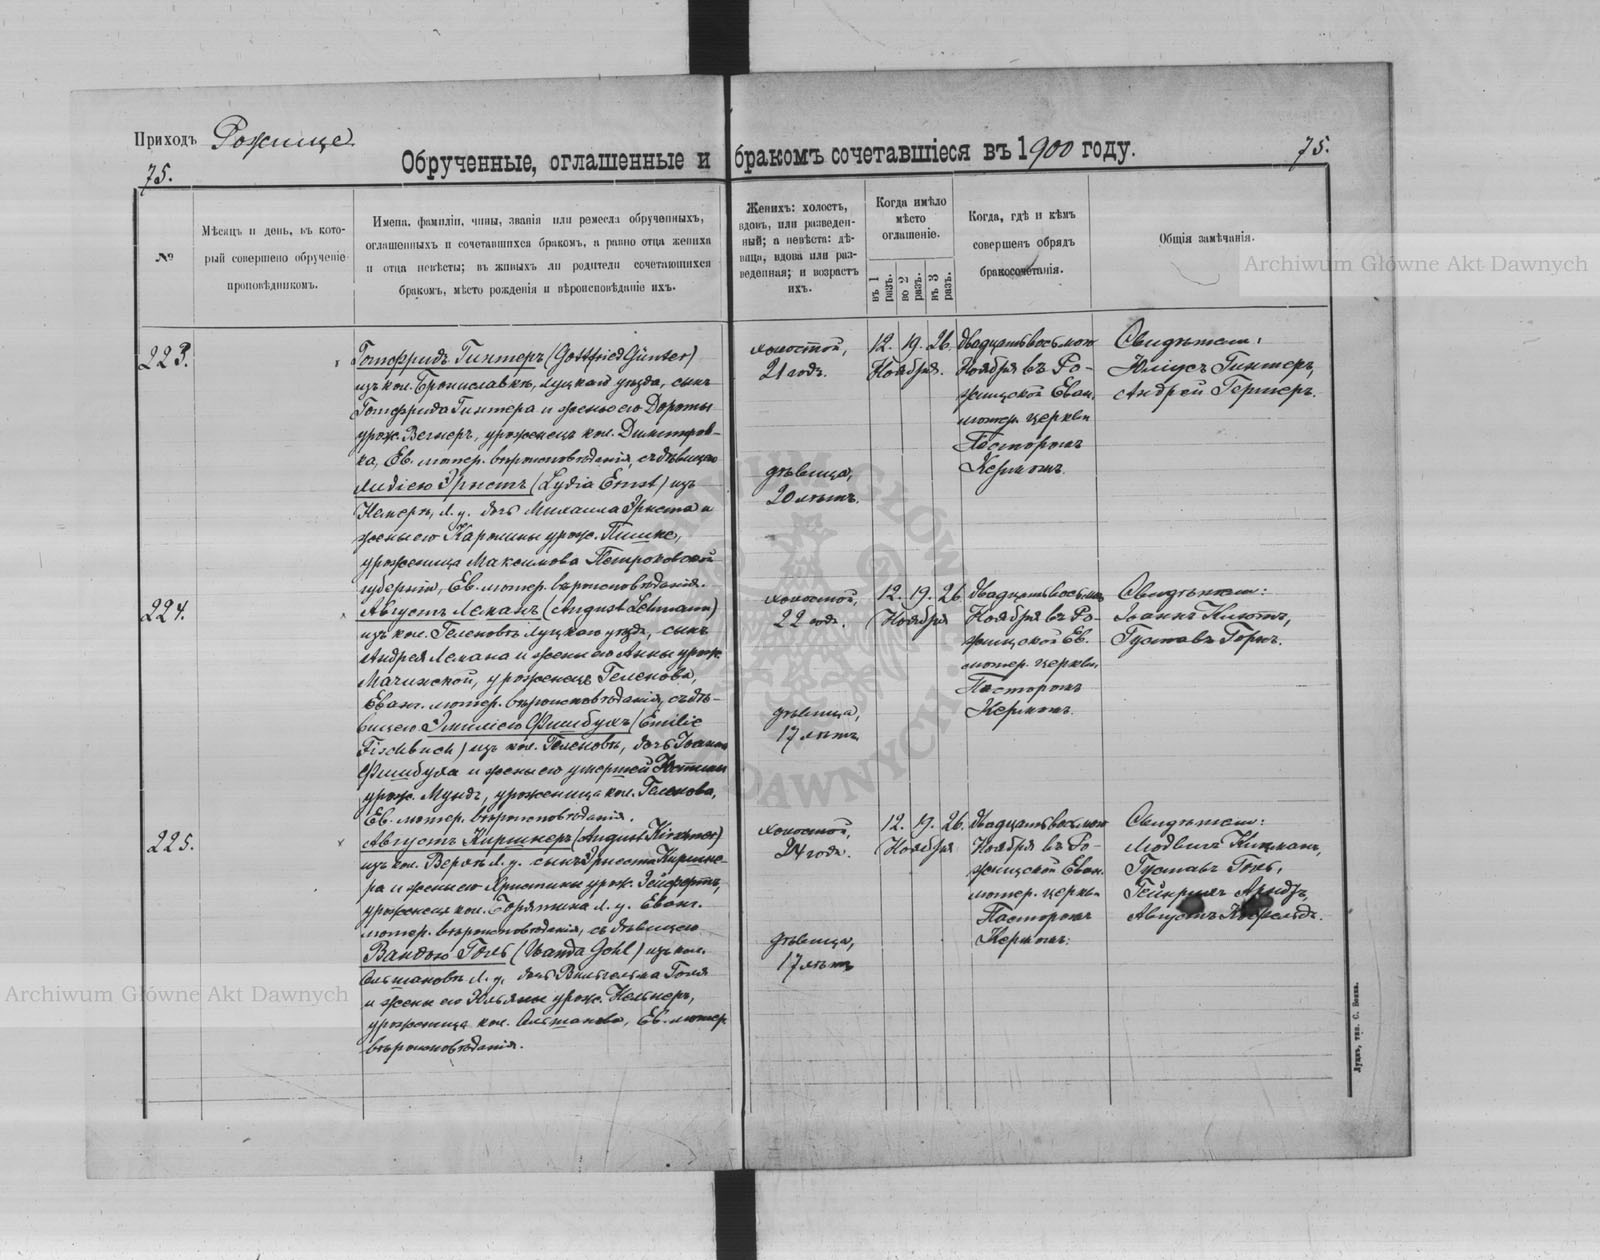 Приходъ Рожище
Обрученные, оглашенные и бракомъ сочетавшіеся въ 1900 году.
75.
75.
№
Мѣсяцъ и день, въ кото-
рый совершено обрученіе
проповѣдникомъ.
Имена, фамиліи, чины, званія или ремесла обрученныхъ,
оглашенныхъ и сочетавшихся бракомъ, а равно отца жениха
и отца невѣсты; въ живыхъ ли родители сочетающихся
бракомъ, мѣсто рожденія и вѣроисповѣданіе ихъ.
Женихъ: холостъ,
вдовъ, или разведен-
ный; а невѣста: дѣ-
вица, вдова или раз-
веденная; и возрастъ
ихъ.
Когда имѣло
мѣсто
оглашеніе.
въ 1 разъ.
во 2 разъ.
въ 3 разъ.
Когда, гдѣ и кѣмъ
совершенъ обрядъ
бракосочетанія.
Общія замѣчанія.
Archiwum Główne Akt Dawnych
223.
Готфридъ Гинтеръ (Gottfried Günter)
изъ кол. Брониславка, Луцкаго уѣзда, сынъ
Готфрида Гинтера и жены его Дороты
урож. Вегнеръ, уроженецъ кол. Димитров-
ка, Ев. лютер. вѣроисповѣданія, съ дѣвицею
Лидіею Эрнстъ (Lydia Ernst) изъ
Л. у. дочь Михаила Эрнста и
жены его Каролины урож.
уроженица Максимова Петроковской
губерніи, Ев. лютер. вѣроисповѣданія.
холостой,
21 годъ.
дѣвица,
20 лѣтъ.
12. 19. 26.
Ноября.
двадцать восьмого
Ноября въ Ро-
жищской Еван.
лютер. церкви
Пасторомъ
Кермомъ.
Свидѣтели:
Юліусъ Гинтеръ,
Андрей Гертеръ.
224.
Августъ Леманъ (August Lehmann)
изъ кол. Геленовъ Луцкаго уѣзда, сынъ
Андрея Лемана и жены его Анны урож.
Мачинской, уроженецъ Геленова,
Еванг. лютер. вѣроисповѣданія, съ дѣ-
вицею Эмиліею Фишбухъ (Emilie
Fischbuch) изъ кол. Геленовъ, дочь Іоанна
Фишбуха и жены его умершей Юстины
урож. Мундъ, уроженица кол. Геленова,
Ев. лютер. вѣроисповѣданія.
холостой,
22 года.
дѣвица,
17 лѣтъ
12. 19. 26
Ноября
двадцать восьмого
Ноября въ Ро-
жищской Ев.
лютер. церкви
Пасторомъ
Кермомъ.
Свидѣтели:
Іоаннъ
Густавъ Горнъ.
225.
Августъ Киршнеръ (August Kirschner)
изъ кол. Л. у. сынъ Эрнста Киршне-
ра и жены его Христины урож. Зейфертъ,
уроженецъ кол. Л. у. Еванг.
лютер. вѣроисповѣданія, съ дѣвицею
Вандою Голь (Wanda Gohl) изъ кол.
Ольшановъ Л. у. дочь Вильгельма Голя
и жены его Юльяны урож. Кельнеръ,
уроженица кол. Ольшанова, Ев. лютер.
вѣроисповѣданія.
холостой,
24 года.
дѣвица,
17 лѣтъ
12. 19. 26.
Ноября
двадцать восьмого
Ноября въ Ро-
жищской Еван.
лютер. церкви
Пасторомъ
Кермомъ.
Свидѣтели:
Людвигъ
Густавъ Голь,
Гейнрихъ Арндъ,
Августъ
Archiwum Główne Akt Dawnych
Луцкъ, тип. С. Бокка.